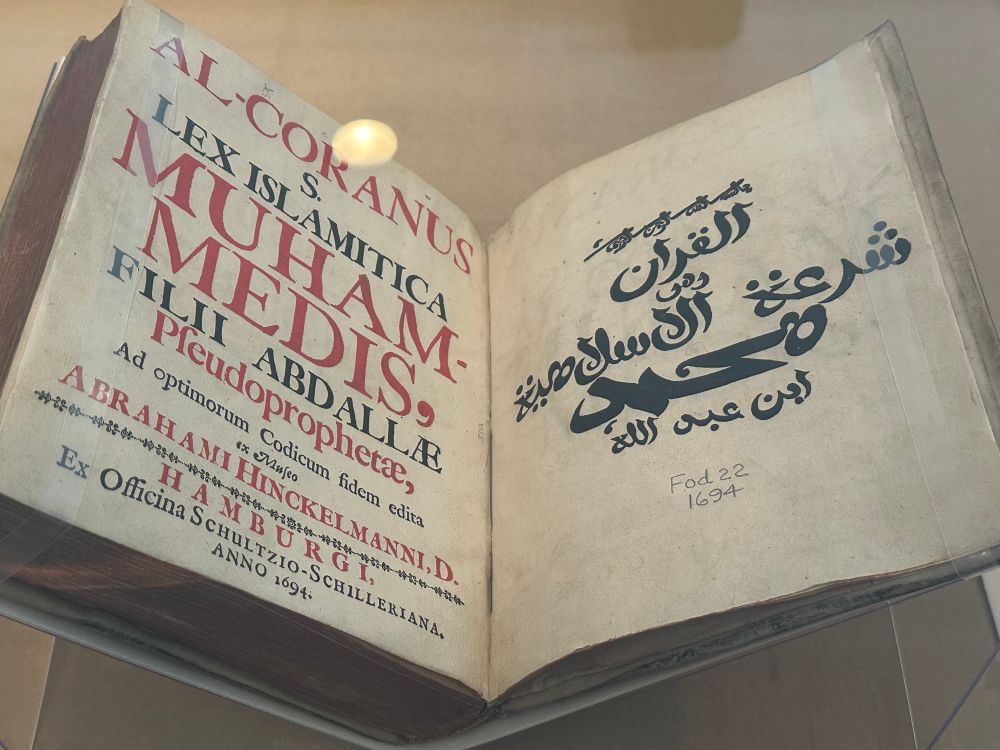 AL-CORANUS
S.
LEX ISLAMITICA
MUHAM-
MEDIS,
FILII ABDALLÆ
Pſeudoprophetæ,
Ad optimorum Codicum fidem edita
ex Muſeo
ABRAHAMI HINCKELMANNI, D.
HAMBURGI,
Ex Officina SCHULTZIO-SCHILLERIANA.
ANNO 1694.
القران
وهو
شرعة
الاسلامية
محمد
ابن عبد الله
Fod 22
1694